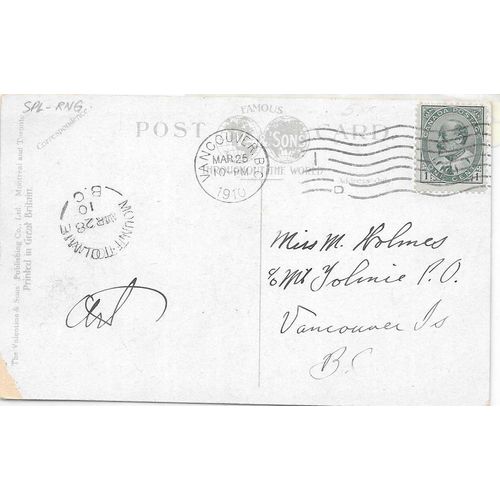 SPL-RNG.
Correspondence.
POST CARD
FAMOUS
SONS
THROUGHOUT THE WORLD
VANCOUVER, B.C.
MAR 25
PM
1910
CANADA POSTAGE
1 1
MOUNT-TOLMIE
MR 28
10
B.C
Miss M. Holmes
Mt Tolmie P.O.
Vancouver Is
B.C.
Art
The Valentine & Sons' Publishing Co., Ltd., Montreal and Toronto
Printed in Great Britain.